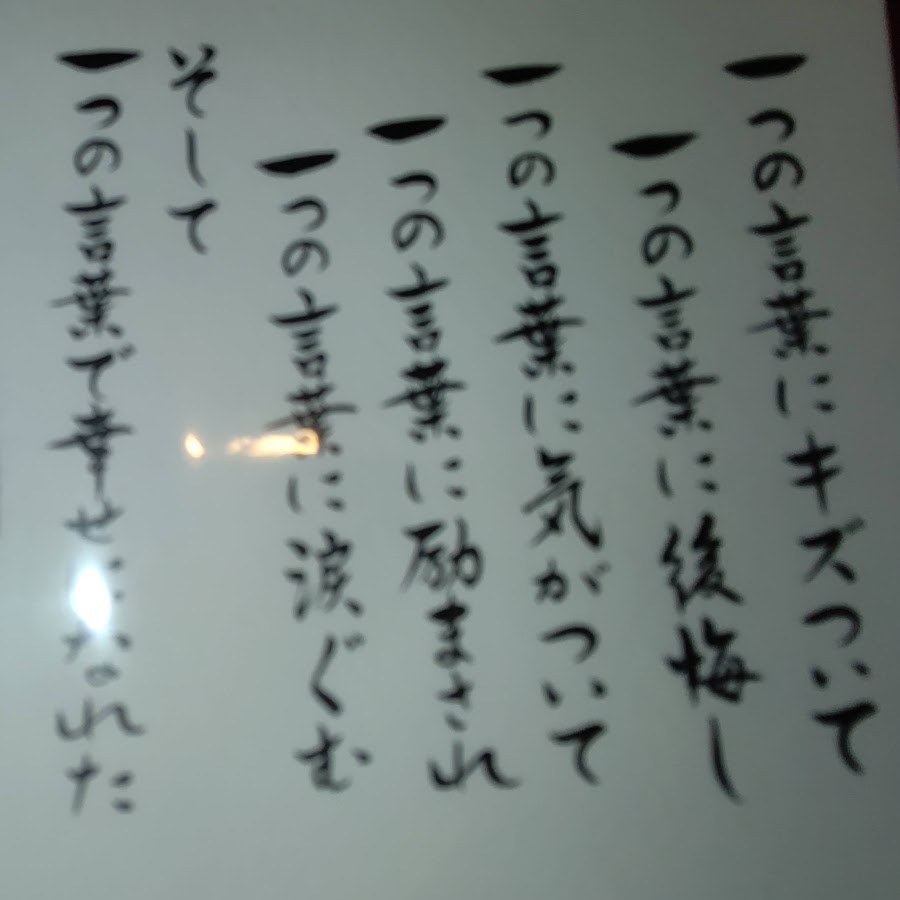 一つの言葉にキズついて
一つの言葉に後悔し
一つの言葉に気がついて
一つの言葉に励まされ
一つの言葉に涙ぐむ
そして
一つの言葉で幸せになれた